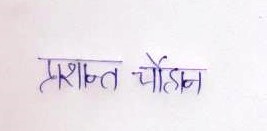 प्रशान्त चौहान